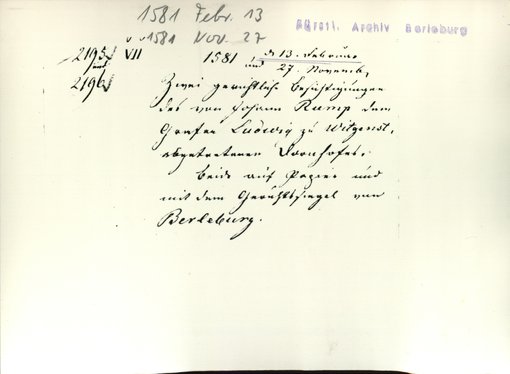 1581 Febr. 13
1581 Nov. 27
Fürstl. Archiv Berleburg
2195
und
2196
VII
1581, d. 13. Februar
und 27. Novemb.
Zwei gerichtliche Besichtigungen
des von Johann Rump dem
Grafen Ludwig zu Witgenst.
abgetretenen Dornhofes.
Beide auf Papier und
mit dem Gerichtssiegel von
Berleburg.